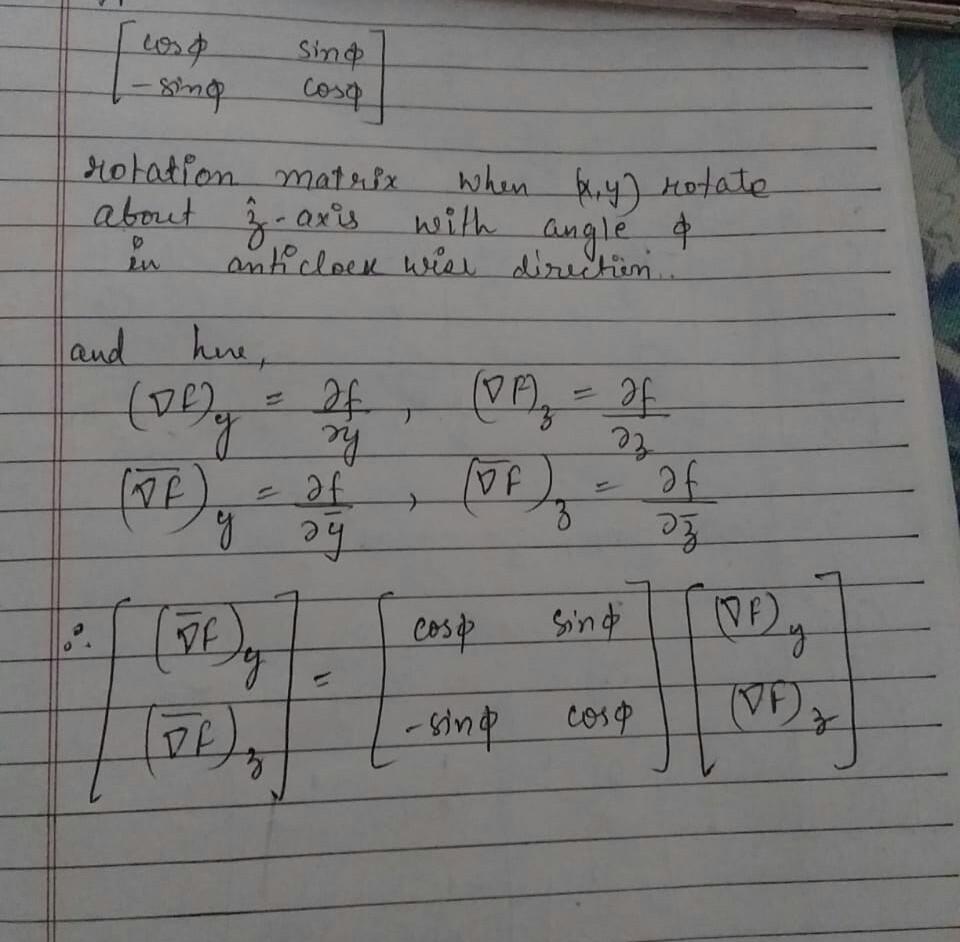 [cosϕ sinϕ
-sinϕ cosϕ]
rotation matrix when (x,y) rotate
about ẑ-axis with angle ϕ
in anticlock wise direction..
and here,
(∇f)y = ∂f/∂y , (∇f)z = ∂f/∂z
(∇̅f)y = ∂f/∂ȳ , (∇̅f)z = ∂f/∂z̄
∴ [(∇̅f)y = [cosϕ sinϕ [(∇f)y
(∇̅f)z] -sinϕ cosϕ] (∇f)z]